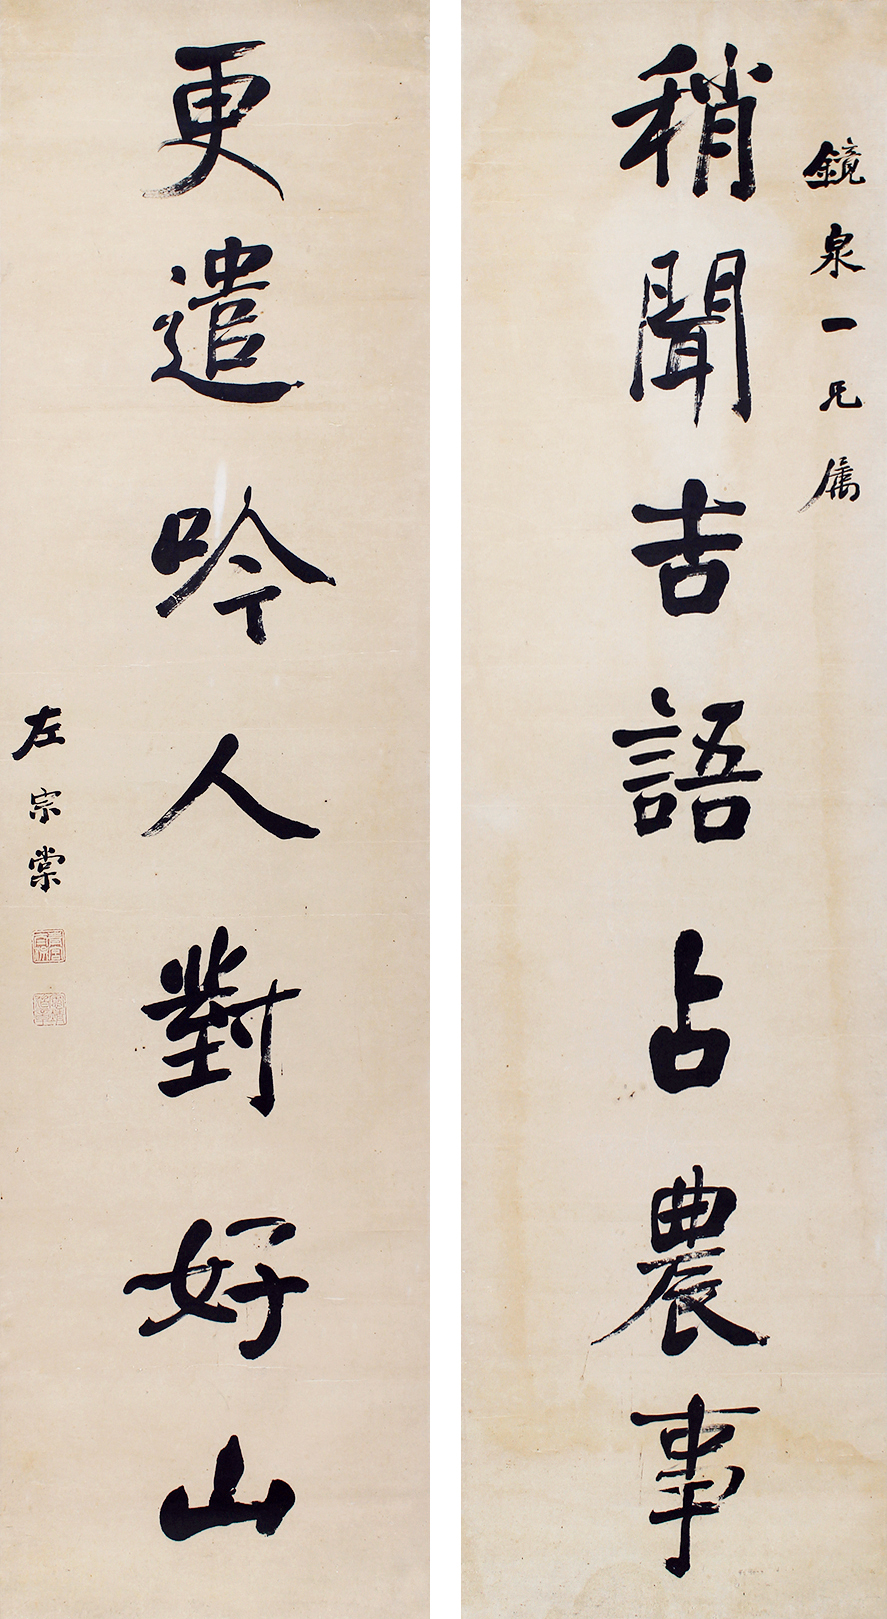 鏡泉一兄属
稍聞吉語占農事
更遣吟人對好山
左宗棠